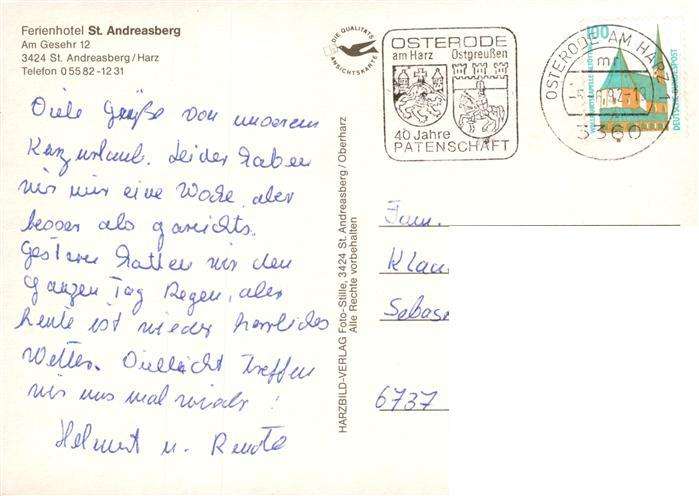 Ferienhotel St. Andreasberg
Am Gesehr 12
3424 St. Andreasberg/Harz
Telefon 0 55 82-12 31
Viele Grüße von unserem
Kurzurlaub. Leider haben
wir nur eine Woche, aber
besser als garnichts.
Gestern hatten wir den
ganzen Tag Regen, aber
heute ist wieder herrliches
Wetter. Vielleicht treffen
wir uns mal wieder!
Helmut u. Renate
DIE QUALITÄTS
ANSICHTSKARTE
HARZBILD-VERLAG Foto-Stille, 3424 St. Andreasberg/Oberharz
Alle Rechte vorbehalten
OSTERODE
am Harz Ostpreußen
40 Jahre
PATENSCHAFT
OSTERODE AM HARZ 1
mr
3360
100
DEUTSCHE BUNDESPOST
WALLFAHRTSKAPELLE ALTÖTTING
Fam.
Klau
Sebas
6737